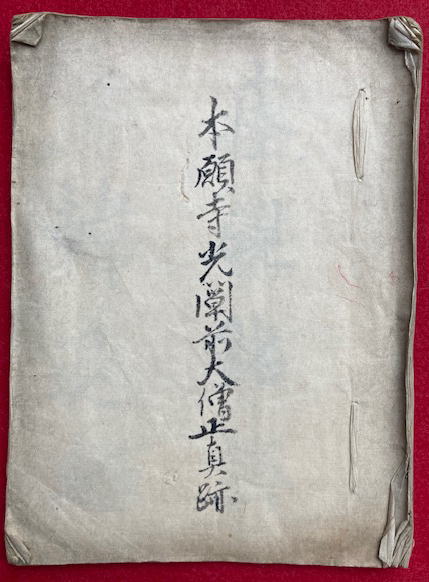 本願寺光闡前大僧正真跡